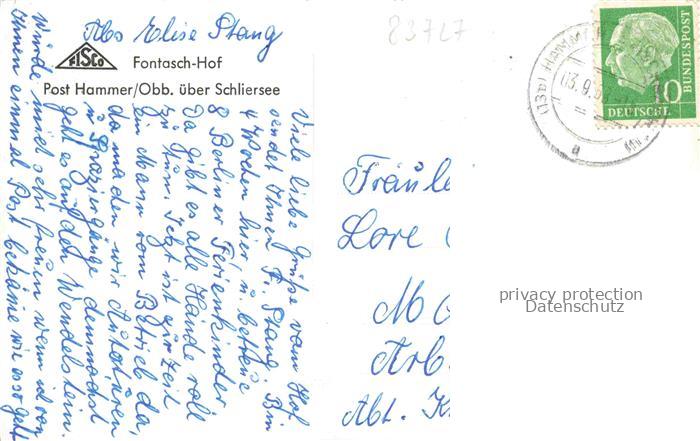 Abs Elise Stang
FISCO
Fontasch-Hof
Post Hammer/Obb. über Schliersee
Viele liebe Grüße vom Hof
sendet Ihnen F. Stang. Bin
4 Wochen hier u. betreue
8 Berliner Ferienkinder
Da gibt es alle Hände voll
zu tun. Jetzt ist zur Zeit
ein Mann vom Betrieb da,
da machen wir Autotouren
u. Spaziergänge demnächst
geht es auf den Wendelstein.
Würde mich sehr freuen wenn ich von
Ihnen einmal Post bekäme wie es so geht
83727
03.9.
10
DEUTSCHE
BUNDESPOST
a
Fräule
Lore
M
Arb
Abt. K
privacy protection
Datenschutz